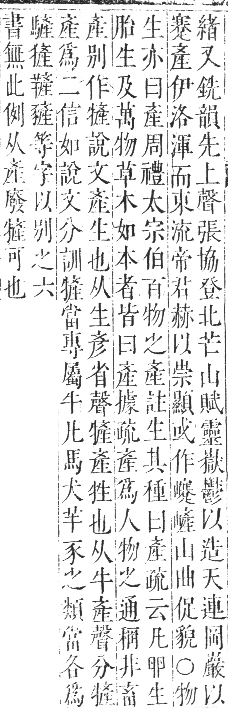 緒又銑韻先上聲張協登北芒山賦靈嶽鬱以造天連岡巖以
蹇產伊洛渾而東流帝君赫以崇顯或作㠾嵼山曲促貌○物
生亦曰產周禮太宗伯百物之產註生其種曰產疏云凡卵生
胎生及萬物草木如本者皆曰產據疏產爲人物之通稱非畜
產别作㹌說文產生也从生彥省聲㹌產牲也从牛產聲分㹌
產爲二信如說文分訓㹌當專屬牛凡馬犬羊豕之類當各爲
等字以别之六
書無此例从產廢㹌可也